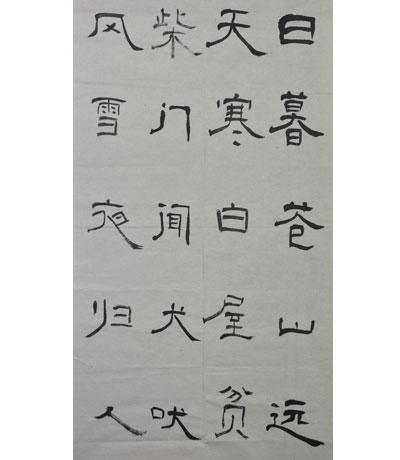 日暮苍山远
天寒白屋贫
柴门闻犬吠
风雪夜归人